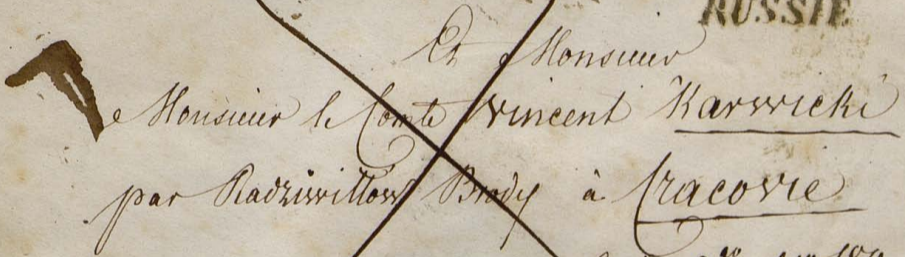 RUSSIE
A Monsieur
Monsieur le Comte Vincent Karwicki
par Radziwillow Brody à Cracovie